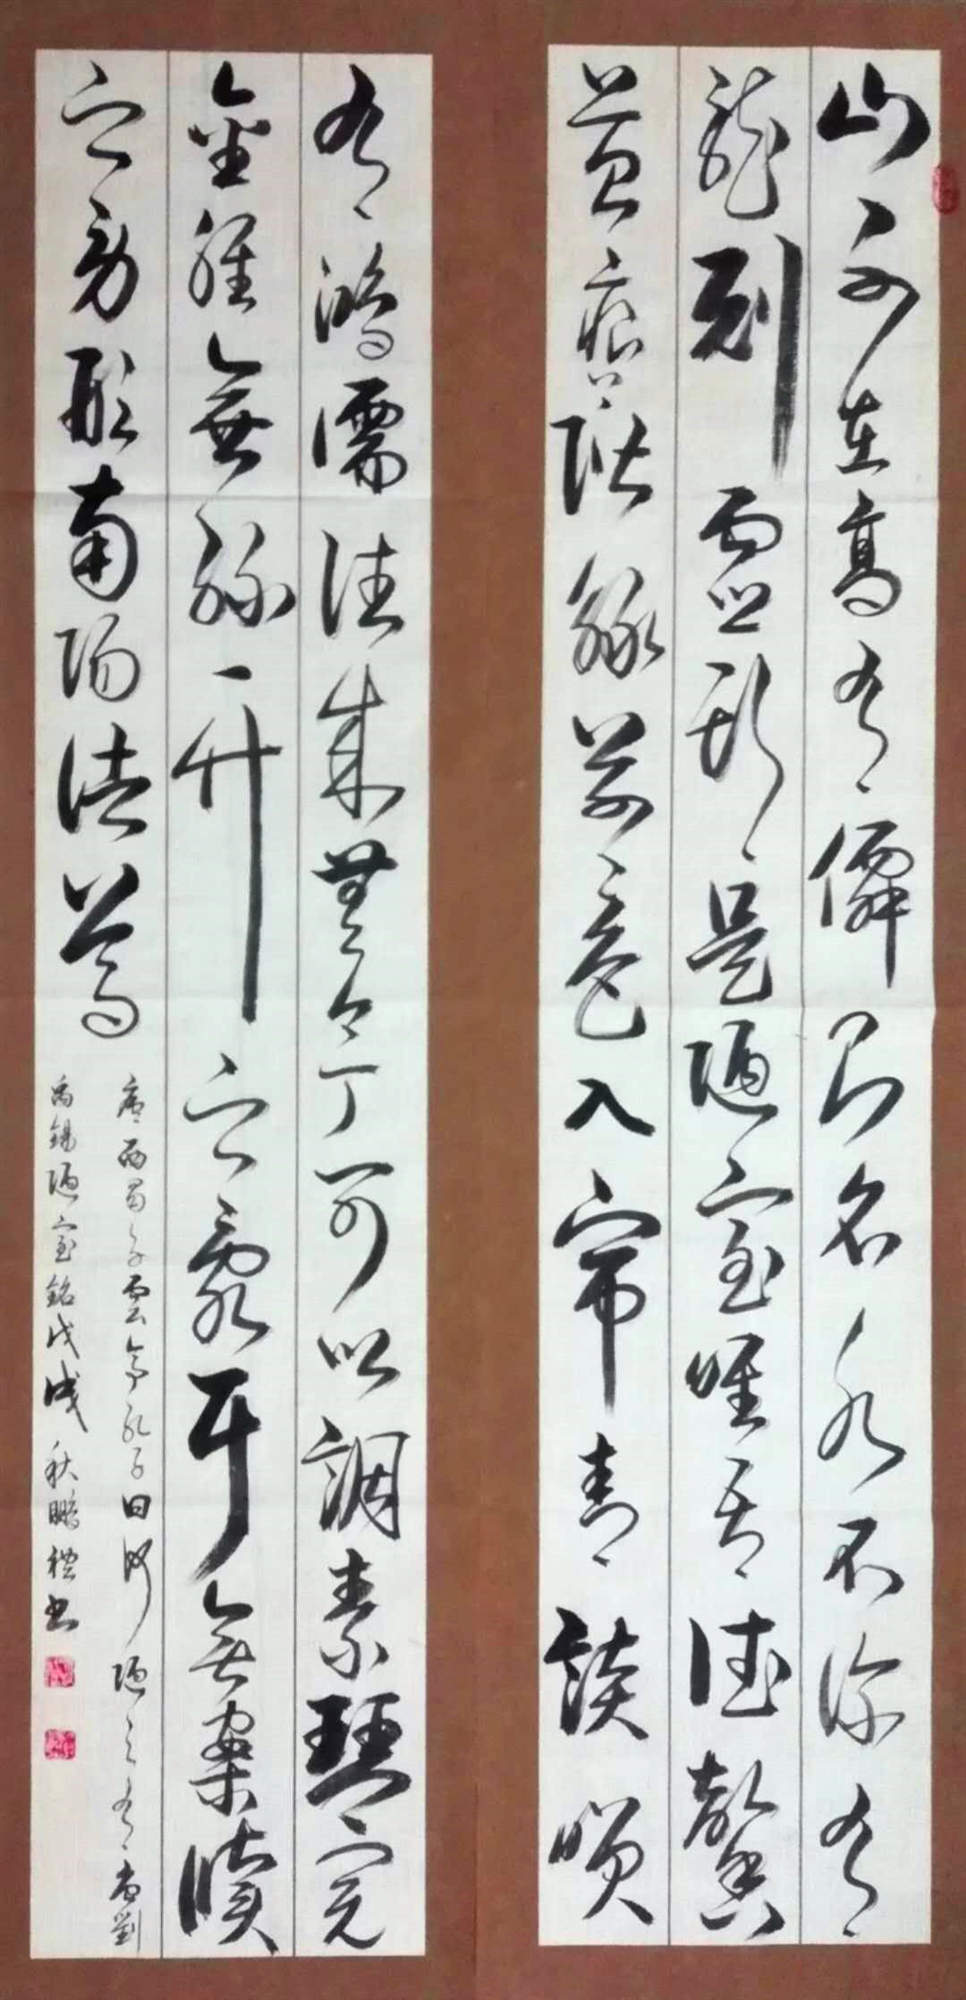 山不在高有僊則名水不深有
龍則靈斯是陋室唯吾德馨
苔痕上階綠草色入帘青談咲
有鴻儒往來無白丁可以調素琴閱
金經無絲竹之亂耳無案牘
之勞形南陽諸葛
廬西蜀子雲亭孔子曰何陋之有 劉
禹錫陋室銘戊戌秋鵬書